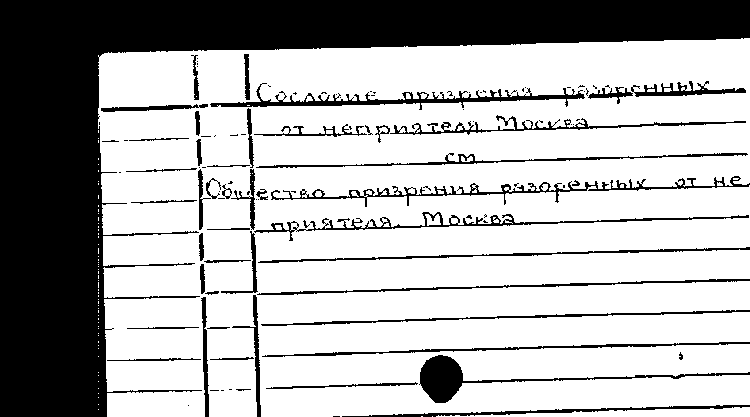 Сословие призрения разоренных
от неприятеля Москва
см
Общество призрения разоренных от не
приятеля. Москва